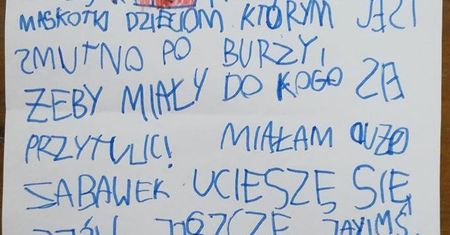 MASKOTKI DZIECIOM KTÓRYM JEST
SMUTNO PO BURZY,
ŻEBY MIAŁY DO KOGO SIĘ
PRZYTULIĆ! MIAŁAM DUŻO
SABAWEK UCIESZĘ SIĘ